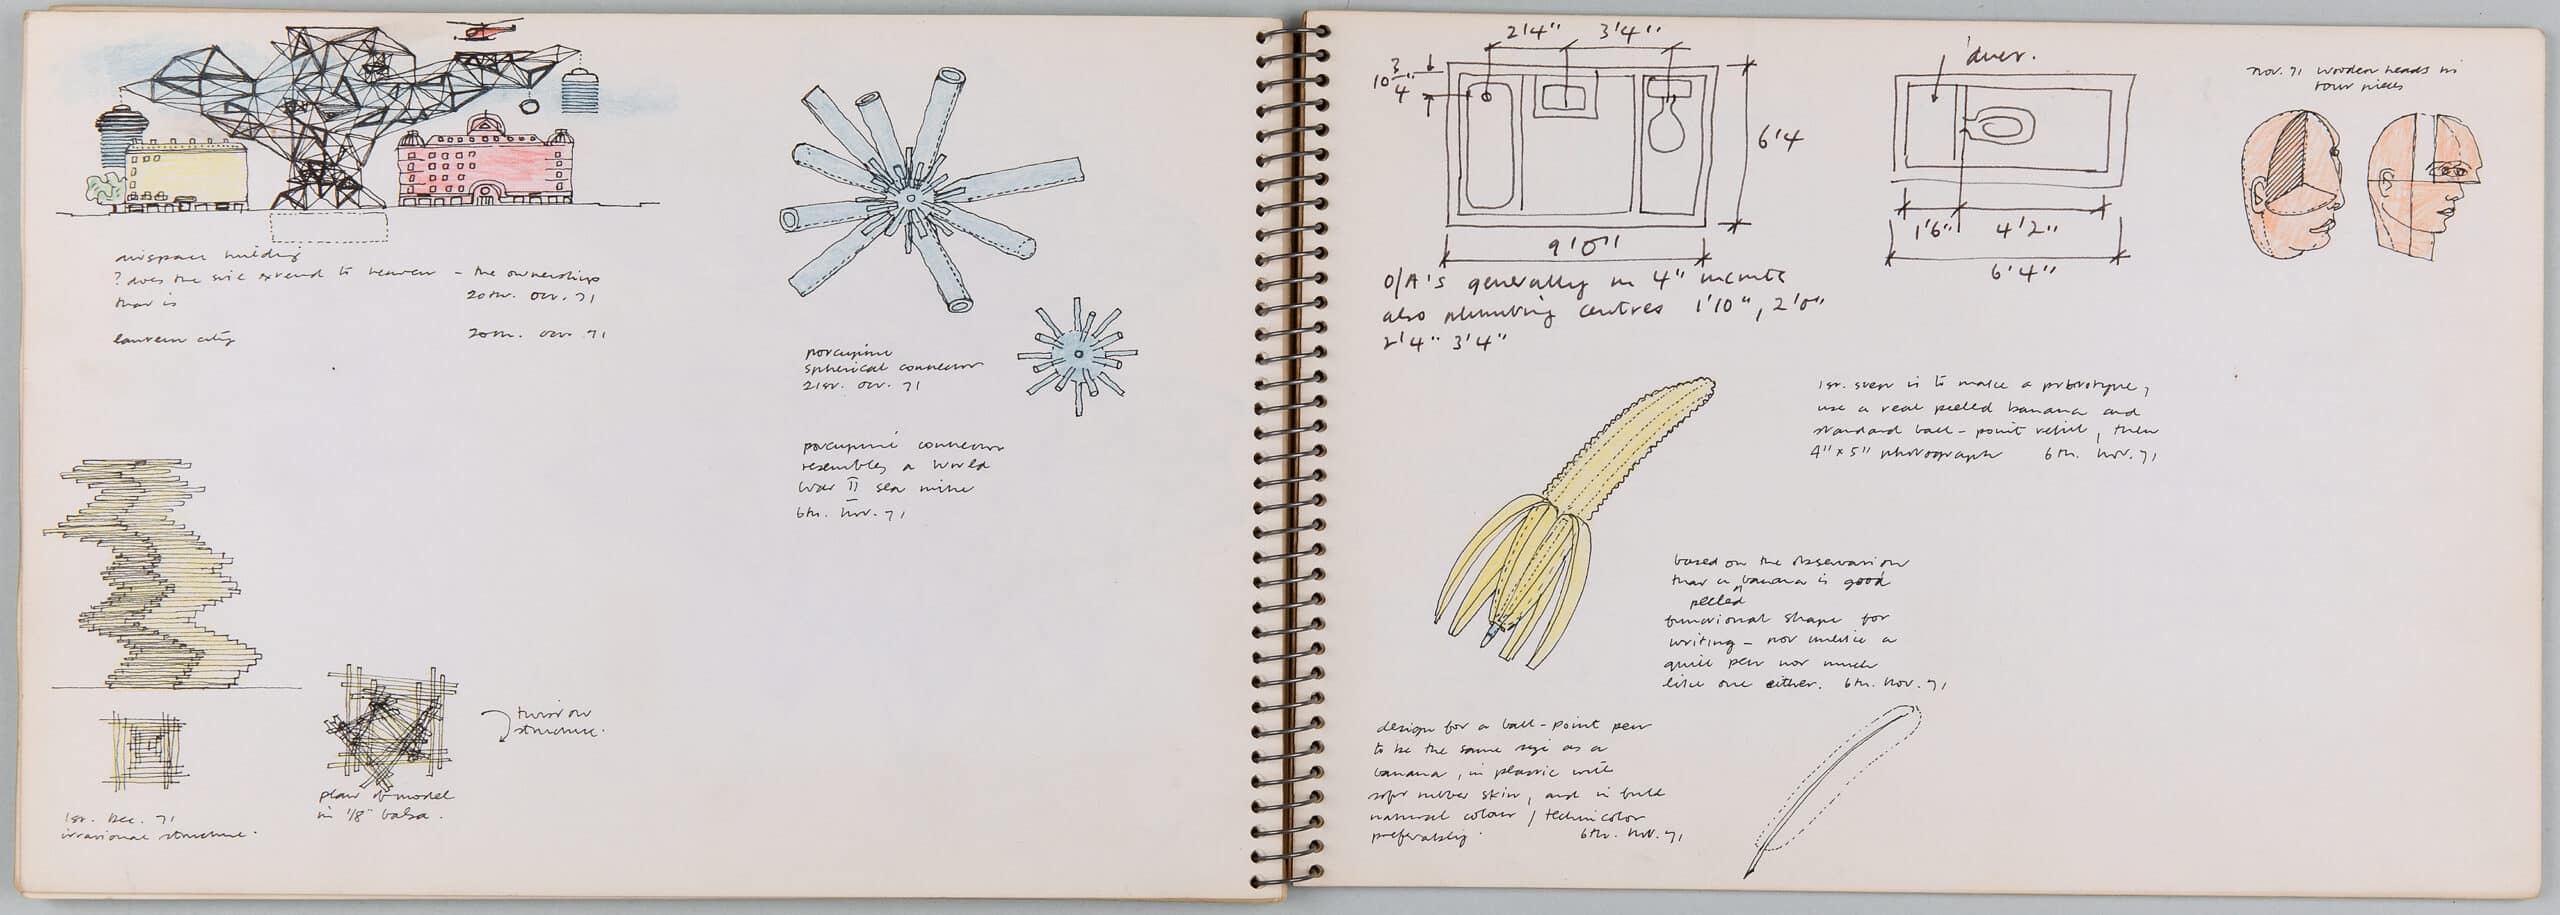 airspace building
? does the site extend to heaven – the ownership
that is
20th. Oct. 71
lantern city
20th. Oct. 71
porcupine
spherical connector
21st. Oct. 71
porcupine connector
resembles a world
war II sea mine
6th. Nov. 71
twist on
structure.
plan of model
in 1/8" balsa.
1st. Dec. 71
irrational structure.
2'4" 3'4"
10 3/4"
6'4
9'0"
O/A's generally in 4" incmts
also plumbing centres 1'10", 2'0"
2'4" 3'4"
duct.
1'6" 4'2"
6'4"
Nov. 71 wooden heads in
four pieces
1st. step is to make a prototype,
use a real peeled banana and
standard ball-point refill, then
4" x 5" photograph 6th. Nov. 71
based on the observation
that a peeled banana is good
functional shape for
writing – not unlike a
quill pen not much
like one either. 6th. Nov. 71
design for a ball-point pen
to be the same size as a
banana, in plastic with
soft rubber skin, and in full
natural colour / technicolor
preferably. 6th. Nov. 71